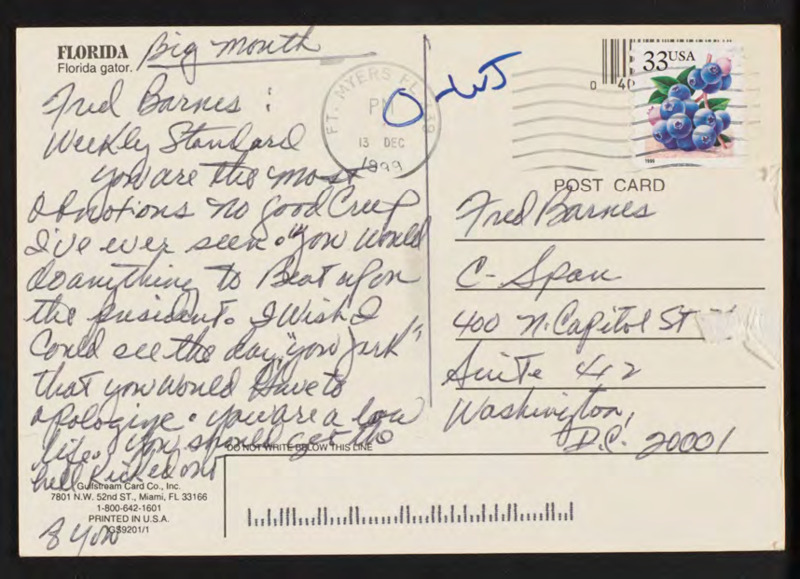 FLORIDA Big mouth
Florida gator.
Fred Barnes:
Weekly Standard
you are the most
obnotions no good Creep
I've ever seen. you would
do anything to Beat upon
the president. I Wish I
Could see the day, "you Jerk"
that you would Have to
apologize. you are a low
life. You should get the
hell Kicked out
of you
DO NOT WRITE BELOW THIS LINE
Gulfstream Card Co., Inc.
7801 N.W. 52nd ST., Miami, FL 33166
1-800-642-1601
PRINTED IN U.S.A.
GS9201/1
FT. MYERS FL 339
PM
13 DEC
1999
0 40
33 USA
POST CARD
Fred Barnes
C-Span
400 N. Capitol ST
Suite 412
Washington,
D.C. 20001